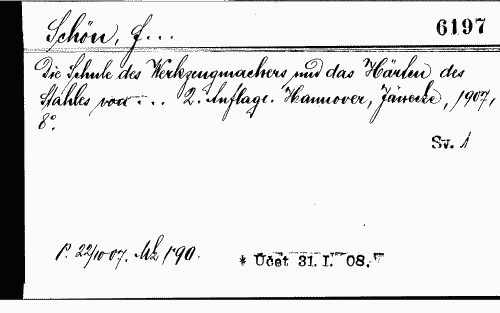 Schön, F...
6197
Die Schule des Werkzeugmachers und das Härten des
Stahles von ... 2. Auflage. Hannover, Jänecke, 1907,
8°.
Sv. 1
P. 22/10 07. Mk 1·90.
* Účet 31. I. 08.